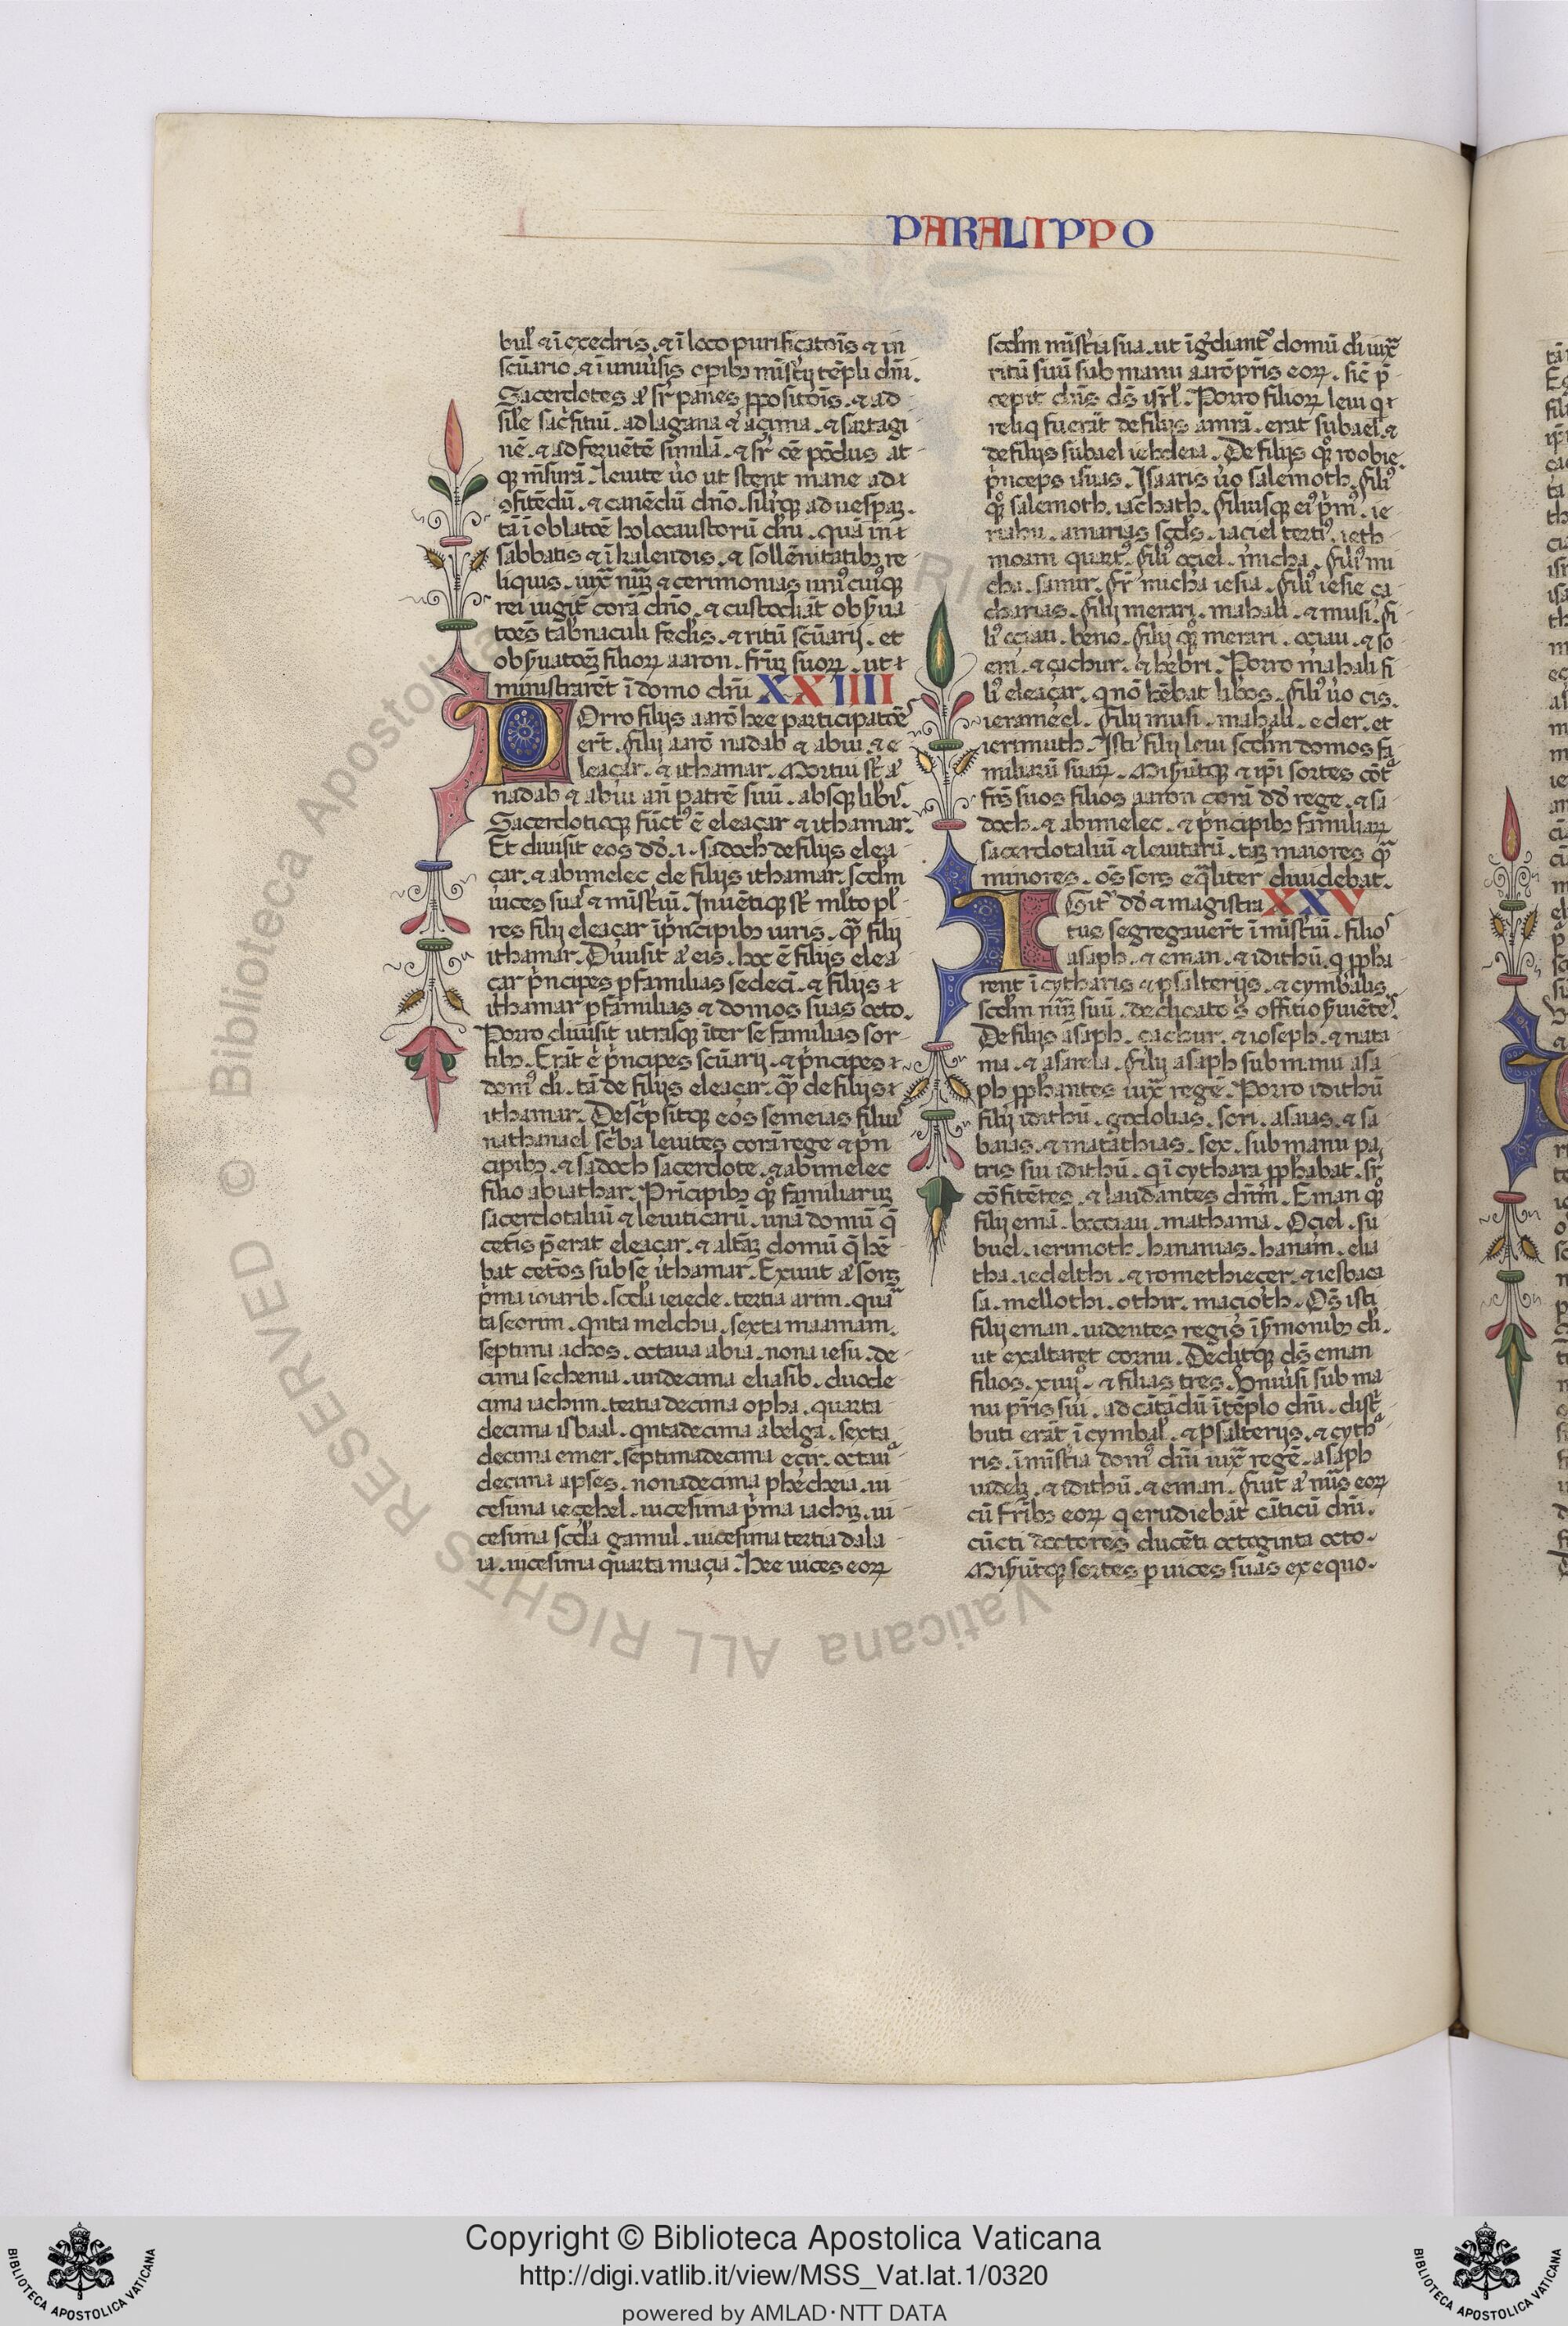 PARALIPPO
bul̄ & ī exedris. & ī loco purificatoīs & in
scūario. & ī uniūsis opibꝫ mīsterij tēpli dn̄i.
Sacerdotes aͥ sr̄ panes ꝓpositoīs. & ad
sil̄e sac̊fitiū. ad lagana & açima. & sartagi
nē. & ad feruētē similā. & sr̄ oē pōdus at
qꝫ mēsurā. leuite ůo ut stent mane ad
ꝯfitēdū. & canēdū dn̄o. silr̄qꝫ ad uesperaꝫ.
tā ī oblatōe holocaustorū dn̄i. quā in
sabbatis & ī kalendis. & sollēnitatibꝫ re
liquis. iux̄ nūꝫ & cerimonias uniꝰ cuiꝰqꝫ
rei iugit̄ corā dn̄o. & custodiāt obs̄ua
toēs tab̄naculi fed̄is. & ritū scūarij. et
obs̄uatoēꝫ filioꝝ aaron. fr̄uꝫ suoꝝ. ut
ministrarēt ī domo dn̄i XXIIII
POrro filijs aarō hee participatōēs
er̄t. filij aarō nadab & abiu. & e
leaçar. & ithamar. Mortui st̄ aͥ
nadab & abiu an̄ patrē suū. absqꝫ libīs.
Sacerdotioqꝫ fūctꝰ ē eleaçar & ithamar.
Et diuisit eos dd̄. i. sadoch de filijs elea
çar. & abimelec de filijs ithamar. scd̄m
uices suas & mīst̄iū. Inuētiqꝫ st̄ ml̄to pl̄
res filij eleaçar ī pn̄cipibꝫ uiris. qͣ̄ filij
ithamar. Diuisit aͥ eis. hoc ē filijs elea
çar pn̄cipes p familias sedeci. & filijs
ithamar p familias & domos suas octo.
Porro diuisit utrasqꝫ īter se familias sor
tibꝫ. Erāt ē pn̄cipes scūarij. & pn̄cipes
domꝰ di. tā de filijs eleaçar. qͣ̄ de filijs
ithamar. Desc̊psitqꝫ eos semeias filius
nathanael sc̊ba leuites corā rege & pn̄
cipibꝫ. & sadoch sacerdote. & abimelec
filio abiathar. Prīcipibꝫ qꝫ̊ familiaruꝫ
sacerdotaliū & leuiticarū. unā domū q̄
cetīs p̄erat eleaçar. & altāꝫ domū q̄ hē
bat cetōs sub se ithamar. Exiuit aͥ sors
p̊ma ioiarib. scd̄a ieiede. tertia arim. quar
ta seorim. qͥnta melchia. sexta maaman.
septima achos. octaua abia. nona iesu. de
cima sechenia. undecima eliasib. duode
cima iachim. tertiadecima opha. quarta
decima isbaal. qͥntadecima abelga. sexta
decima emer. septimadecima eçir. octaua
decima apses. nonadecima phecheia. ui
cesima ieçehel. uicesima p̊ma iachiꝫ. ui
cesima scd̄a gamul. uicesima tertia dala
ia. uicesima quarta maçia. hee uices eoꝝ
scd̄m mīst̄ia sua. ut īg̊diantꝰ domū di iux̄
ritū suū sub manu aarō pr̄is eoꝝ. sic̄ p̄
cepit dn̄s ds̄ isr̄l. Porro filioꝝ leui qͥ
reliqͥ fuerāt de filijs amrā. erat subael. &
de filijs subael iehdeia. De filijs qꝫ̊ roobie
p̊nceps isuas. Isaaris ůo salemoth. filiꝰ
qꝫ̊ salemoth. iachath. filiusqꝫ eiꝰ p̊mꝰ. ie
riahu. amarias scd̄s. iaciel tertiꝰ. ieth
moam quartꝰ. filiꝰ oçiel. micha. filiꝰ mi
cha. samir. fr̄ micha iesia. filiꝰ iesie ça
charias. filij merari. mahali. & musi. fi
liꝰ oçiau. beno. filij qꝫ̊ merari. oçiau. & so
em. & çachur. & hebri. Porro mahali fi
liꝰ eleaçar. qͥ nō hēbat lib̄os. filiꝰ ůo cis.
ierameel. filij musi. mahali. eder. et
ierimuth. Isti filij leui scd̄m domos fa
miliarū suaꝝ. Mis̄ūtqꝫ & ip̄i sortes cōtͣ
frēs suos filios aaron corā dd̄ rege. & sa
doch. & abimelec. & pn̄cipibꝫ familiaꝝ
sacerdotaliū & leuitarū. taꝫ maiores qͣ̄
minores. oēs sors eqͣliter diuidebat.
IGit̄ dd̄ & magistra XXV
tus segregauer̄t ī mīst̄iū. filios
asaph. & eman. & idithū. qͥ ꝓpha
rent ī cytharis & psalterijs. & cymbalis.
scd̄m nūꝫ suū. dedicato s̄ offitio s̄uiētes.
De filijs asaph. çachur. & ioseph. & nata
nia. & asarela. filij asaph sub manu asa
ph ꝓphantes iux̄ regē. Porro idithū
filij idithū. godolias. sori. asaias. & sa
baias. & matathias. sex. sub manu pa
tris sui idithū. qͥ ī cythara ꝓphabat. sr̄
cōfitētes. & laudantes dn̄m. Eman qꝫ̊
filij emā. bocciau. mathania. Oçiel. su
buel. ierimoth. hananias. hanani. elia
tha. iedelthi. & romethieçer. & iesbaca
sa. mellothi. othir. maçioth. Oēs isti
filij eman. uidentes regis ī s̄monibꝫ di.
ut exaltaret cornu. Deditqꝫ ds̄ eman
filios. xiiijͦ. & filias tres. Vniūsi sub ma
nu pr̄is sui. ad cātādū ī tēplo dn̄i. dist̄
buti erāt ī cymbal̄. & psalterijs. & cythͣ
ris. ī mīst̄ia domꝰ dn̄i iux̄ regē. asaph
uidelꝫ. & idithū. & eman. fuit aͥ nūs eoꝝ
cū fr̄ibꝫ eoꝝ qͥ erudiebāt cāticū dn̄i.
cūcti doctores ducēti octoginta octo.
Mis̄ūtqꝫ sortes p uices suas ex equo.
© Biblioteca Apostolica Vaticana ALL RIGHTS RESERVED
Copyright © Biblioteca Apostolica Vaticana
http://digi.vatlib.it/view/MSS_Vat.lat.1/0320
powered by AMLAD·NTT DATA
BIBLIOTECA APOSTOLICA VATICANA
BIBLIOTECA APOSTOLICA VATICANA